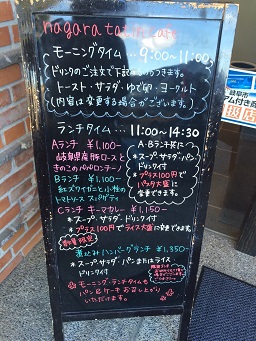 nagara tatin cafe
モーニングタイム… 9:00~11:00
ドリンクのご注文で下記のものがつきます。
トースト・サラダ・ゆで卵・ヨーグルト
(内容は変更する場合がございます。
ランチタイム… 11:00~14:30
Aランチ ¥1,100-
岐阜県産豚ロースと
きのこのパッパロンチーノ
Bランチ ¥1,100-
紅ズワイガニと小柱の
トマトソース スパゲティ
A・Bランチ共に
*スープ・サラダ・パン
ドリンク付
*プラス100円で
パスタ大盛に
変更できます。
Cランチ キーマカレー ¥1,150-
*スープ・サラダ・ドリンク付
*プラス100円でライス大盛に変更できます。
数量限定
煮込みハンバーグランチ ¥1,350-
*スープ・サラダ・パンまたはライス
ドリンク付
モーニング・ランチタイムも
パン&ケーキ お召し上がり
いただけます。
岐阜市
アム付き商
扱店